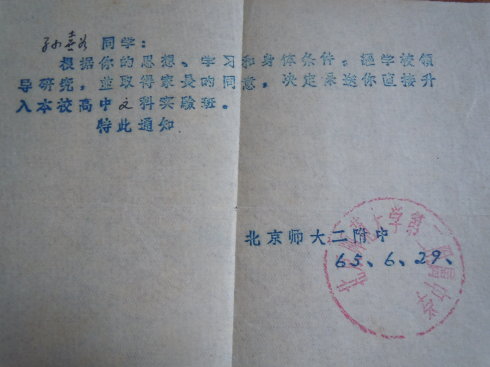 同学：
根据你的思想、学习和身体条件，经学校领
导研究，並取得家长的同意，决定采送你直接升
入本校高中文科实验班。
特此通知
北京师大二附中
65、6、29、
北京师范大学第二附属中学